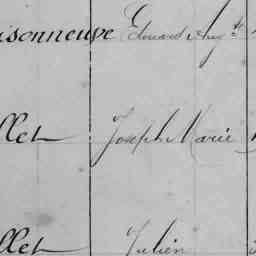 isonneuve Edouard Aug.te
llet Joseph Marie
llet Julien